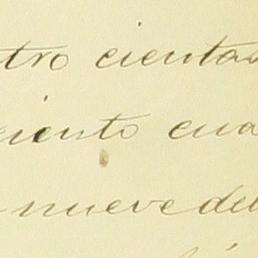 tro cientas
ciento cua
nueve del